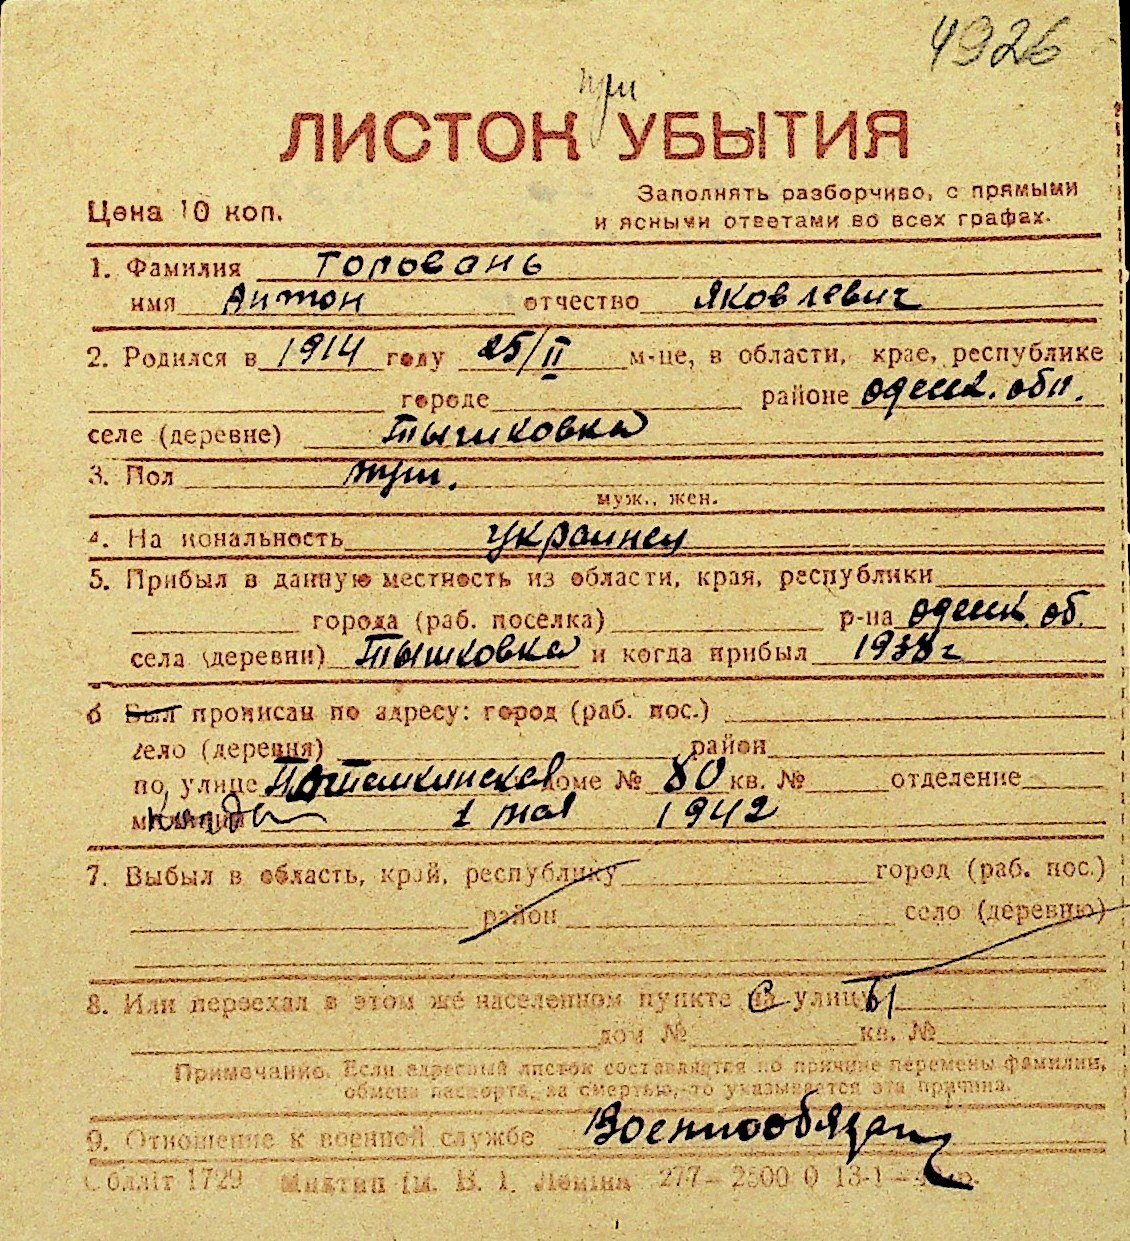 4926
при
ЛИСТОК УБЫТИЯ
Цена 10 коп.
Заполнять разборчиво, с прямыми
и ясными ответами во всех графах.
1. Фамилия Головань
имя Антон отчество Яковлевич
2. Родился в 1914 году 25/II м-це, в области, крае, республике
городе районе одесск. обл.
селе (деревне) Тышковка
3. Пол муж.
муж., жен.
4. На иональность украинец
5. Прибыл в данную местность из области, края, республики
города (раб. поселка) р-на одесск. об.
села (деревни) Тышковка и когда прибыл 1938 г
6 Был прописан по адресу: город (раб. пос.)
село (деревня) район
по улице Потемкинская доме № 80 кв. № отделение
1 мая 1942
7. Выбыл в область, край, республику город (раб. пос.)
район село (деревню)
8. Или переехал в этом же населенном пункте с улицы
дом № кв. №
Примечание. Если адресный листок составляется по причине перемены фамилии,
обмена паспорта, за смертью,-то указывается эта причина.
9. Отношение к военной службе Военнообязан
Обллiт 1729 Миктип iм. В. I. Ленiна 277— 2500 0 13-1